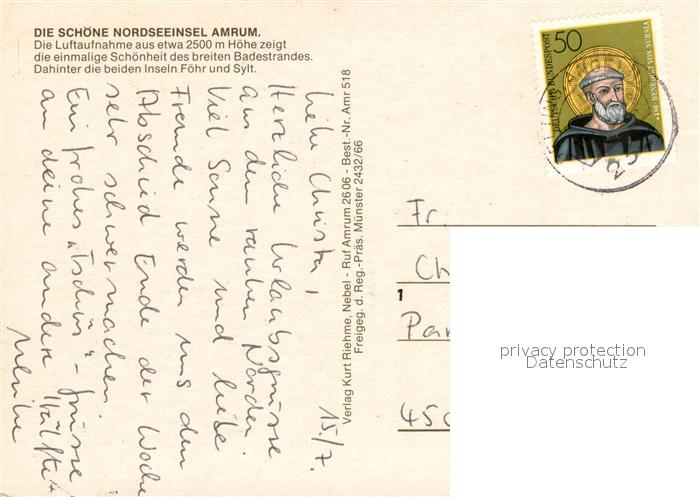 DIE SCHÖNE NORDSEEINSEL AMRUM.
Die Luftaufnahme aus etwa 2500 m Höhe zeigt
die einmalige Schönheit des breiten Badestrandes.
Dahinter die beiden Inseln Föhr und Sylt.
15/7.
Liebe Christa,
Herzliche Urlaubsgrüsse
aus dem rauhen Norden.
Viel Sonne und liebe
Freunde werden uns den
Abschied Ende der Woche
sehr schwer machen.
Ein frohes "Tschüs" - Grüsse
an deine andere Hälfte -
Verlag Kurt Riehme, Nebel - Ruf Amrum 26 06 - Best.-Nr. Amr 518
Freigeg. d. Reg.-Präs. Münster 2432/66
DEUTSCHE BUNDESPOST
50
*480 BENEDIKT VON NURSIA
23
Fr.
Ch
1
Par
450
privacy protection
Datenschutz